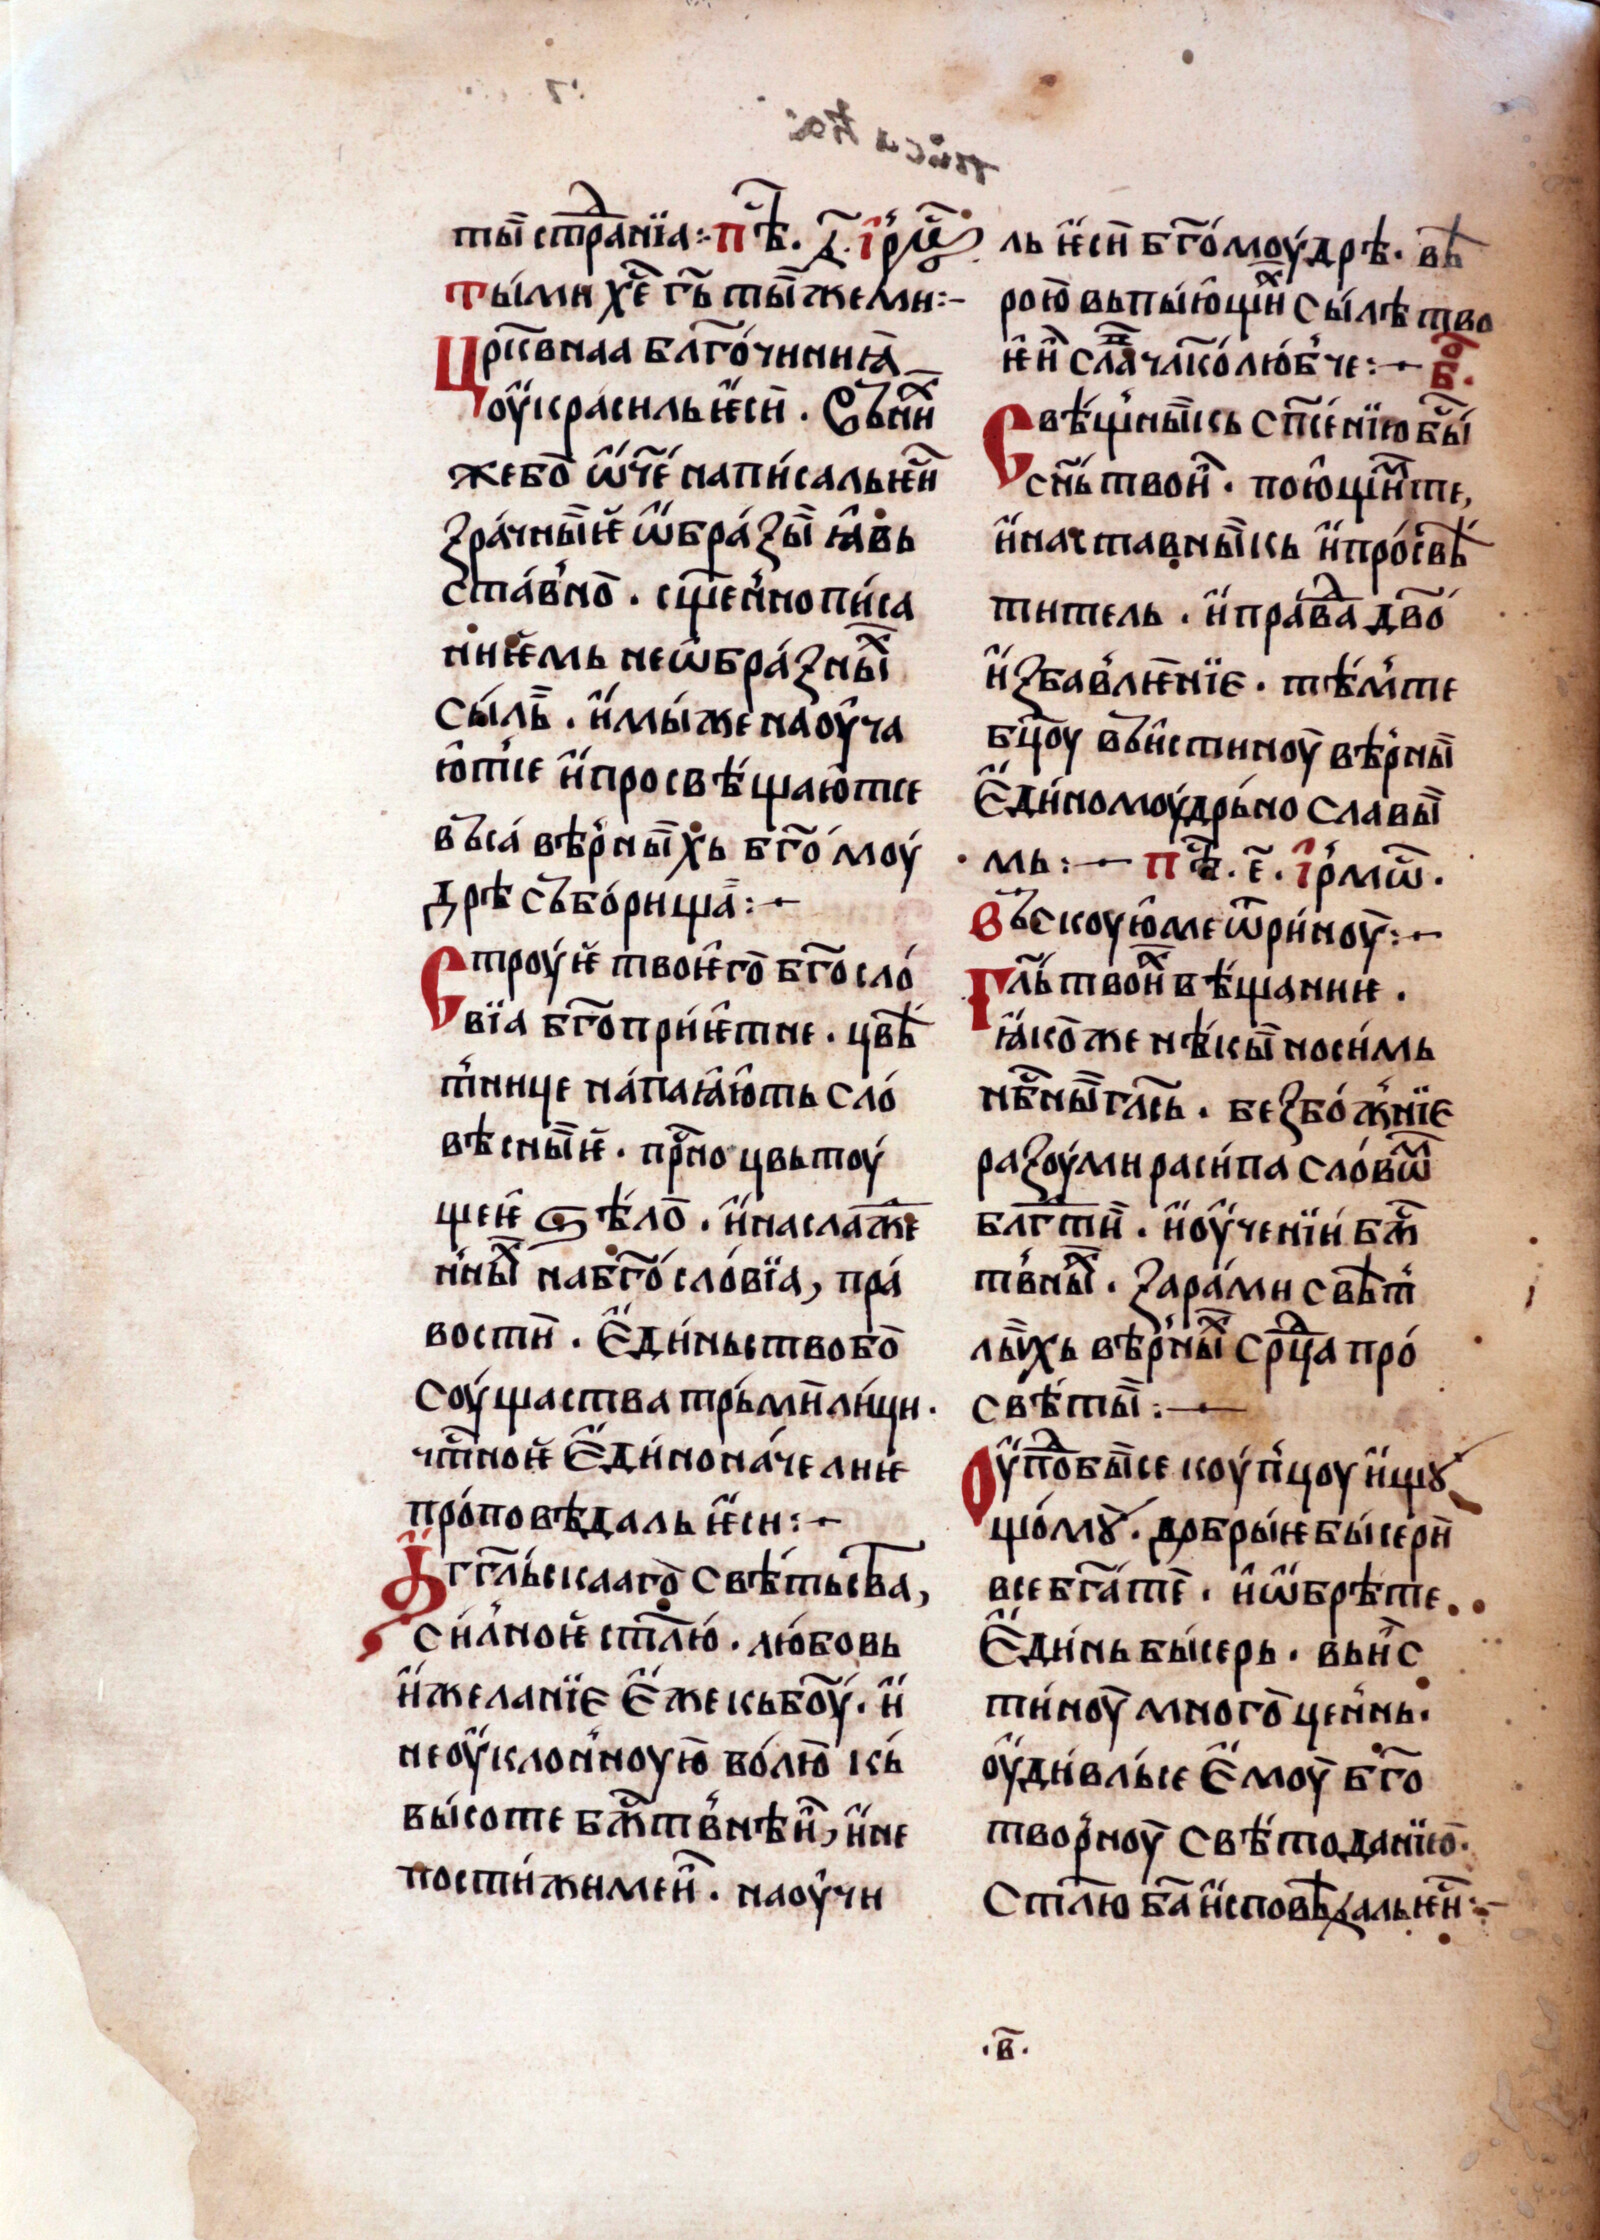 тыи странїа:· пѣ҇. д҃. і҆рмⷪ҇
тыми хе҃ гь҇ ты же ми:–
Цр҃ковнаа благо́чинїꙗ
оу҆красиль ѥ҆си. Съни́ⷯ
же бо ѿч҃е написаль ѥ҆сѝ
ꙁра́чныиѥ ѡ҆бра́ꙁы ꙗ҆вь
ста́вно. сщ҃енно пи́са
ниѥмь неѡ҆бра́ꙁныⷯ
сы́ль. и҆ мы́ же наоу҆ча
ю҆тсе и҆ просвѣ́щаю҆тсе
въса́ вѣ́рныхь бг҃о́моу
дрѣ събо́рища:–
Строу́ѥ твоѥго бг҃осло́
вїа бг҃опри́ѥтне. цвѣ
тнице напаꙗ҆ю҆ть сло
вѣсныиѥ. прⷭ҇но цвьтоу́
щеѥ ѕѣ́ло. и҆ наслаж҃е
нныⷯ на бг҃осло́вїа, пра́
вости. Є҆ди́ньство бо
соу́щаства трьми ли́ци.
чт҃ноѥ є҆ди́нонача́лниѥ
пропо́вѣдаль ѥ҆си:–
А҆гг҃льскааго свѣ́тьства,
си́лноѥ ст҃лю́. любовь
и҆ желанїе є҆же кь бг҃оу́. и҆
неоу҆клонноую во́лю кь
высоте бж҃твнѣи, и҆ не
пости́жимеи. наоу҆чи
ль ѥ҆си бг҃о́моу́дрѣ. вѣ
рою вьпыю҆щиⷯ сы́лѣ тво
ѥ҆и сла́ва чл҃колю́бче:– б҃.
Свѣ́щныикь сп҃се́нїю бы҇
сн҃ь твои. пою҆щим те,
и҆ наставныкь и҆ про́свѣ
титель. и҆ пра́ва дв҃о
и҆ꙁбавлѥнїе. тѣ́м те
бц҃оу въи҆стиноу вѣрны
є҆ди́номоу́дрьно славы
мь:– пѣ҇. е҃. і҆рмѡⷭ҇.
Въскоую ме ѿри́ноу:–
Гл҃ь твои́ⷯ вѣ́щаниѥ.
ꙗ҆коже нѣ́кы носи́мь
нбⷭ҇ны гла́сь. беꙁбо́жнїе
раꙁоу́ми раси́па слово́мь
благⷣти. и҆ оу҆че́нїи бж҃
твныⷯ. ꙁара́ми свѣт
лыхь вѣрныⷯ срⷣца про́
свѣ́ты:–
Оу҆пⷣобыꙇсе коу́пцоу и҆щꙋ
що́мꙋ. добры́ѥ бы́сери
все бг҃ате. и҆ ѡ҆брѣте.
Є҆ди́нь бы́серь. вьи҆с
ти́ноу много́цен҆нь.
оу҆ди́вльсе є҆моу бг҃о
творноу свѣ́тода́нїю.
Ст҃лю ба҃ и҆сповѣ́даль ѥ҆сѝ:–
·в҃·